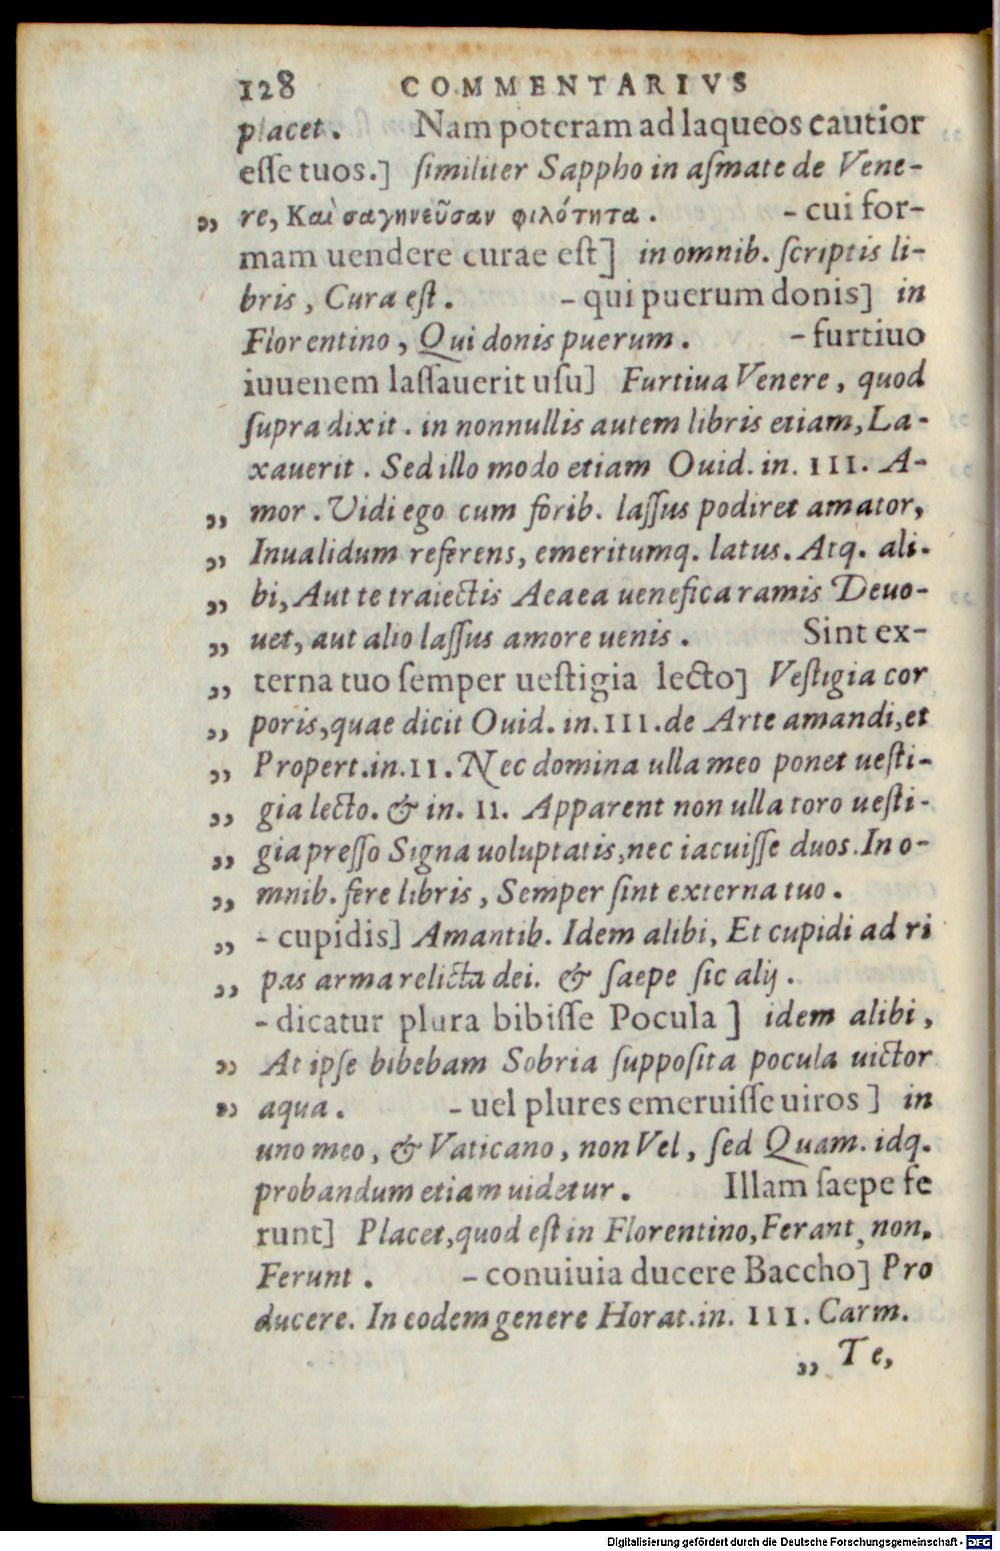 128 COMMENTARIVS
placet. Nam poteram ad laqueos cautior
esse tuos.] similiter Sappho in asmate de Vene-
„ re, Καὶ σαγηνεῦσαν φιλότητα. - cui for-
mam uendere curae est] in omnib. scriptis li-
bris, Cura est. - qui puerum donis] in
Florentino, Qui donis puerum. - furtiuo
iuuenem lassauerit usu] Furtiua Venere, quod
supra dixit. in nonnullis autem libris etiam, La-
xauerit. Sed illo modo etiam Ouid. in. III. A-
„ mor. Vidi ego cum forib. lassus podiret amator,
„ Inualidum referens, emeritumq. latus. Atq. ali-
„ bi, Aut te traiectis Aeaea uenefica ramis Deuo-
„ uet, aut alio lassus amore uenis. Sint ex-
„ terna tuo semper uestigia lecto] Vestigia cor
„ poris, quae dicit Ouid. in. III. de Arte amandi, et
„ Propert. in. II. Nec domina ulla meo ponet uesti-
„ gia lecto. & in. II. Apparent non ulla toro uesti-
„ gia presso Signa uoluptatis, nec iacuisse duos. In o-
„ mnib. fere libris, Semper sint externa tuo.
„ - cupidis] Amantib. Idem alibi, Et cupidi ad ri
„ pas arma relicta dei. & saepe sic alij.
- dicatur plura bibisse Pocula] idem alibi,
„ At ipse bibebam Sobria supposita pocula uictor
„ aqua. - uel plures emeruisse uiros] in
uno meo, & Vaticano, non Vel, sed Quam. idq.
probandum etiam uidetur. Illam saepe fe
runt] Placet, quod est in Florentino, Ferant, non,
Ferunt. - conuiuia ducere Baccho] Pro
ducere. In eodem genere Horat. in. III. Carm.
„ Te,
Digitalisierung gefördert durch die Deutsche Forschungsgemeinschaft - DFG